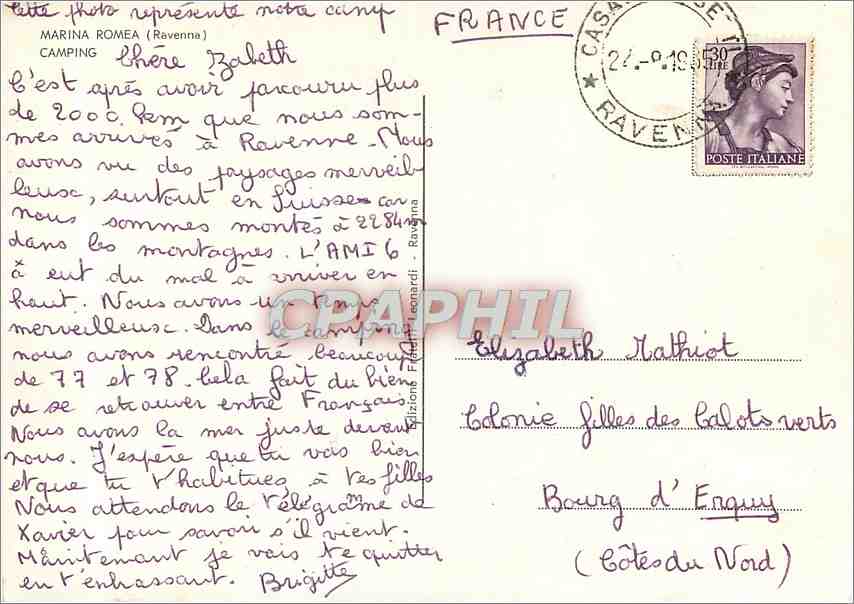 Cette photo représente notre camp
MARINA ROMEA (Ravenna)
CAMPING
Chère Zabeth
C'est après avoir parcouru plus
de 2000 km que nous som-
mes arrivés à Ravenne. Nous
avons vu des paysages merveil-
leusc, surtout en Suisse car
nous sommes montés à 2284m
dans les montagnes. L'AMI 6
a eut du mal à arriver en
haut. Nous avons un temps
merveilleusc. Dans le camping
nous avons rencontré beaucoup
de 77 et 78. Cela fait du bien
de se retrouver entre Français.
Nous avons la mer juste devant
nous. J'espère que tu vas bien
et que tu t'habitues à tes filles
Nous attendons le télégramme de
Xavier pour savoir s'il vient.
Maintenant je vais te quitter
en t'enbrassant. Brigitte
Edizione Fratelli Leonardi - Ravenna
FRANCE
RAVENNA
30
LIRE
POSTE ITALIANE
CPAPHIL
Elizabeth Mathiot
Colonie filles des Calots verts
Bourg d'Erquy
(Côtes du Nord)